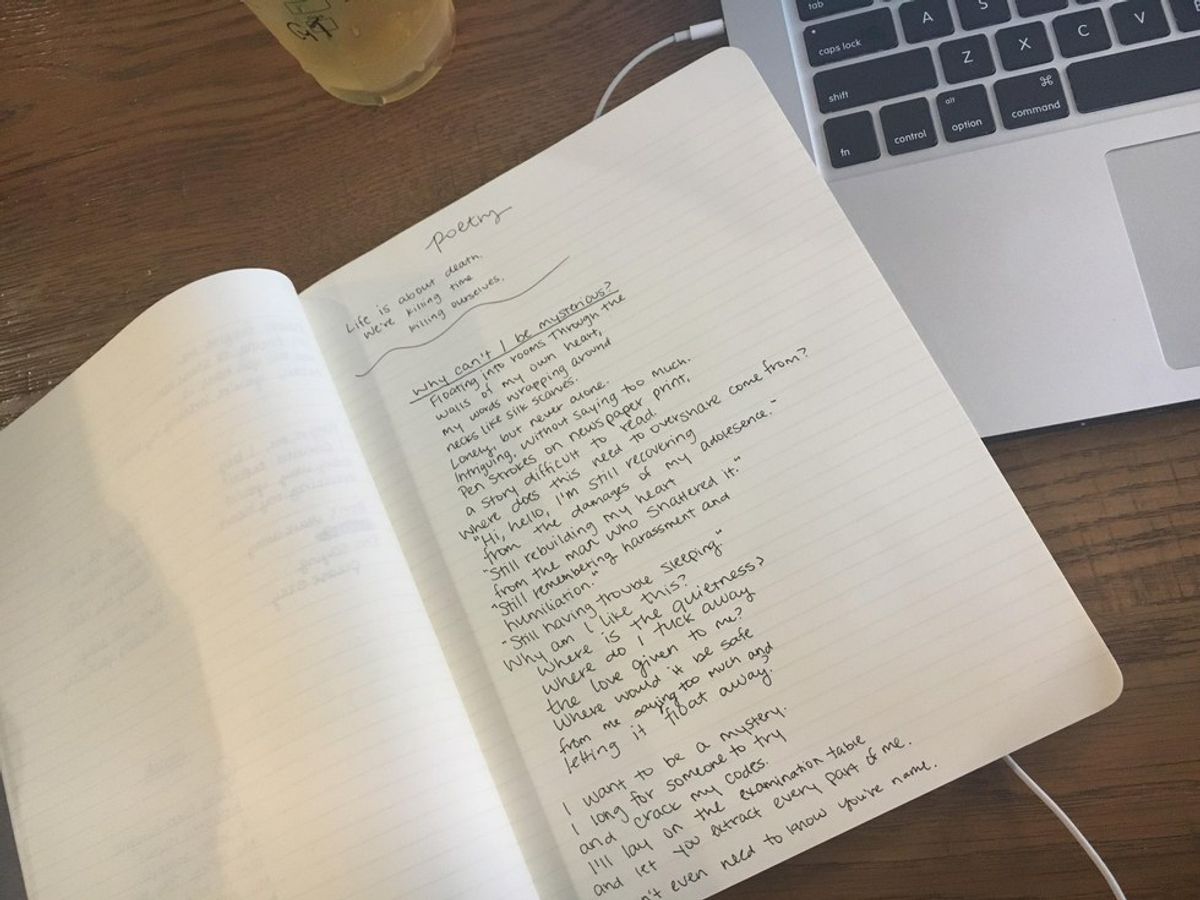 tab
A
S
caps lock
Z
X
C
V
shift
fn
control
alt
option
⌘
command
poetry
Life is about death.
We're killing time
killing ourselves.
Why can't I be mysterious?
Floating into rooms through the
walls of my own heart,
my words wrapping around
necks like silk scarves.
Lonely, but never alone.
Intriguing, without saying too much.
Pen strokes on newspaper print,
a story difficult to read.
Where does this need to overshare come from?
"Hi, hello, I'm still recovering
from the damages of my adolesence."
"Still rebuilding my heart
from the man who shattered it."
"Still remembering harassment and
humiliation."
"Still having trouble sleeping."
Why am I like this?
Where is the quietness?
Where do I tuck away
the love given to me?
Where would it be safe
from me saying too much and
letting it float away?
I want to be a mystery.
I long for someone to try
and crack my codes.
I'll lay on the examination table
and let you extract every part of me.
even need to know you're name.